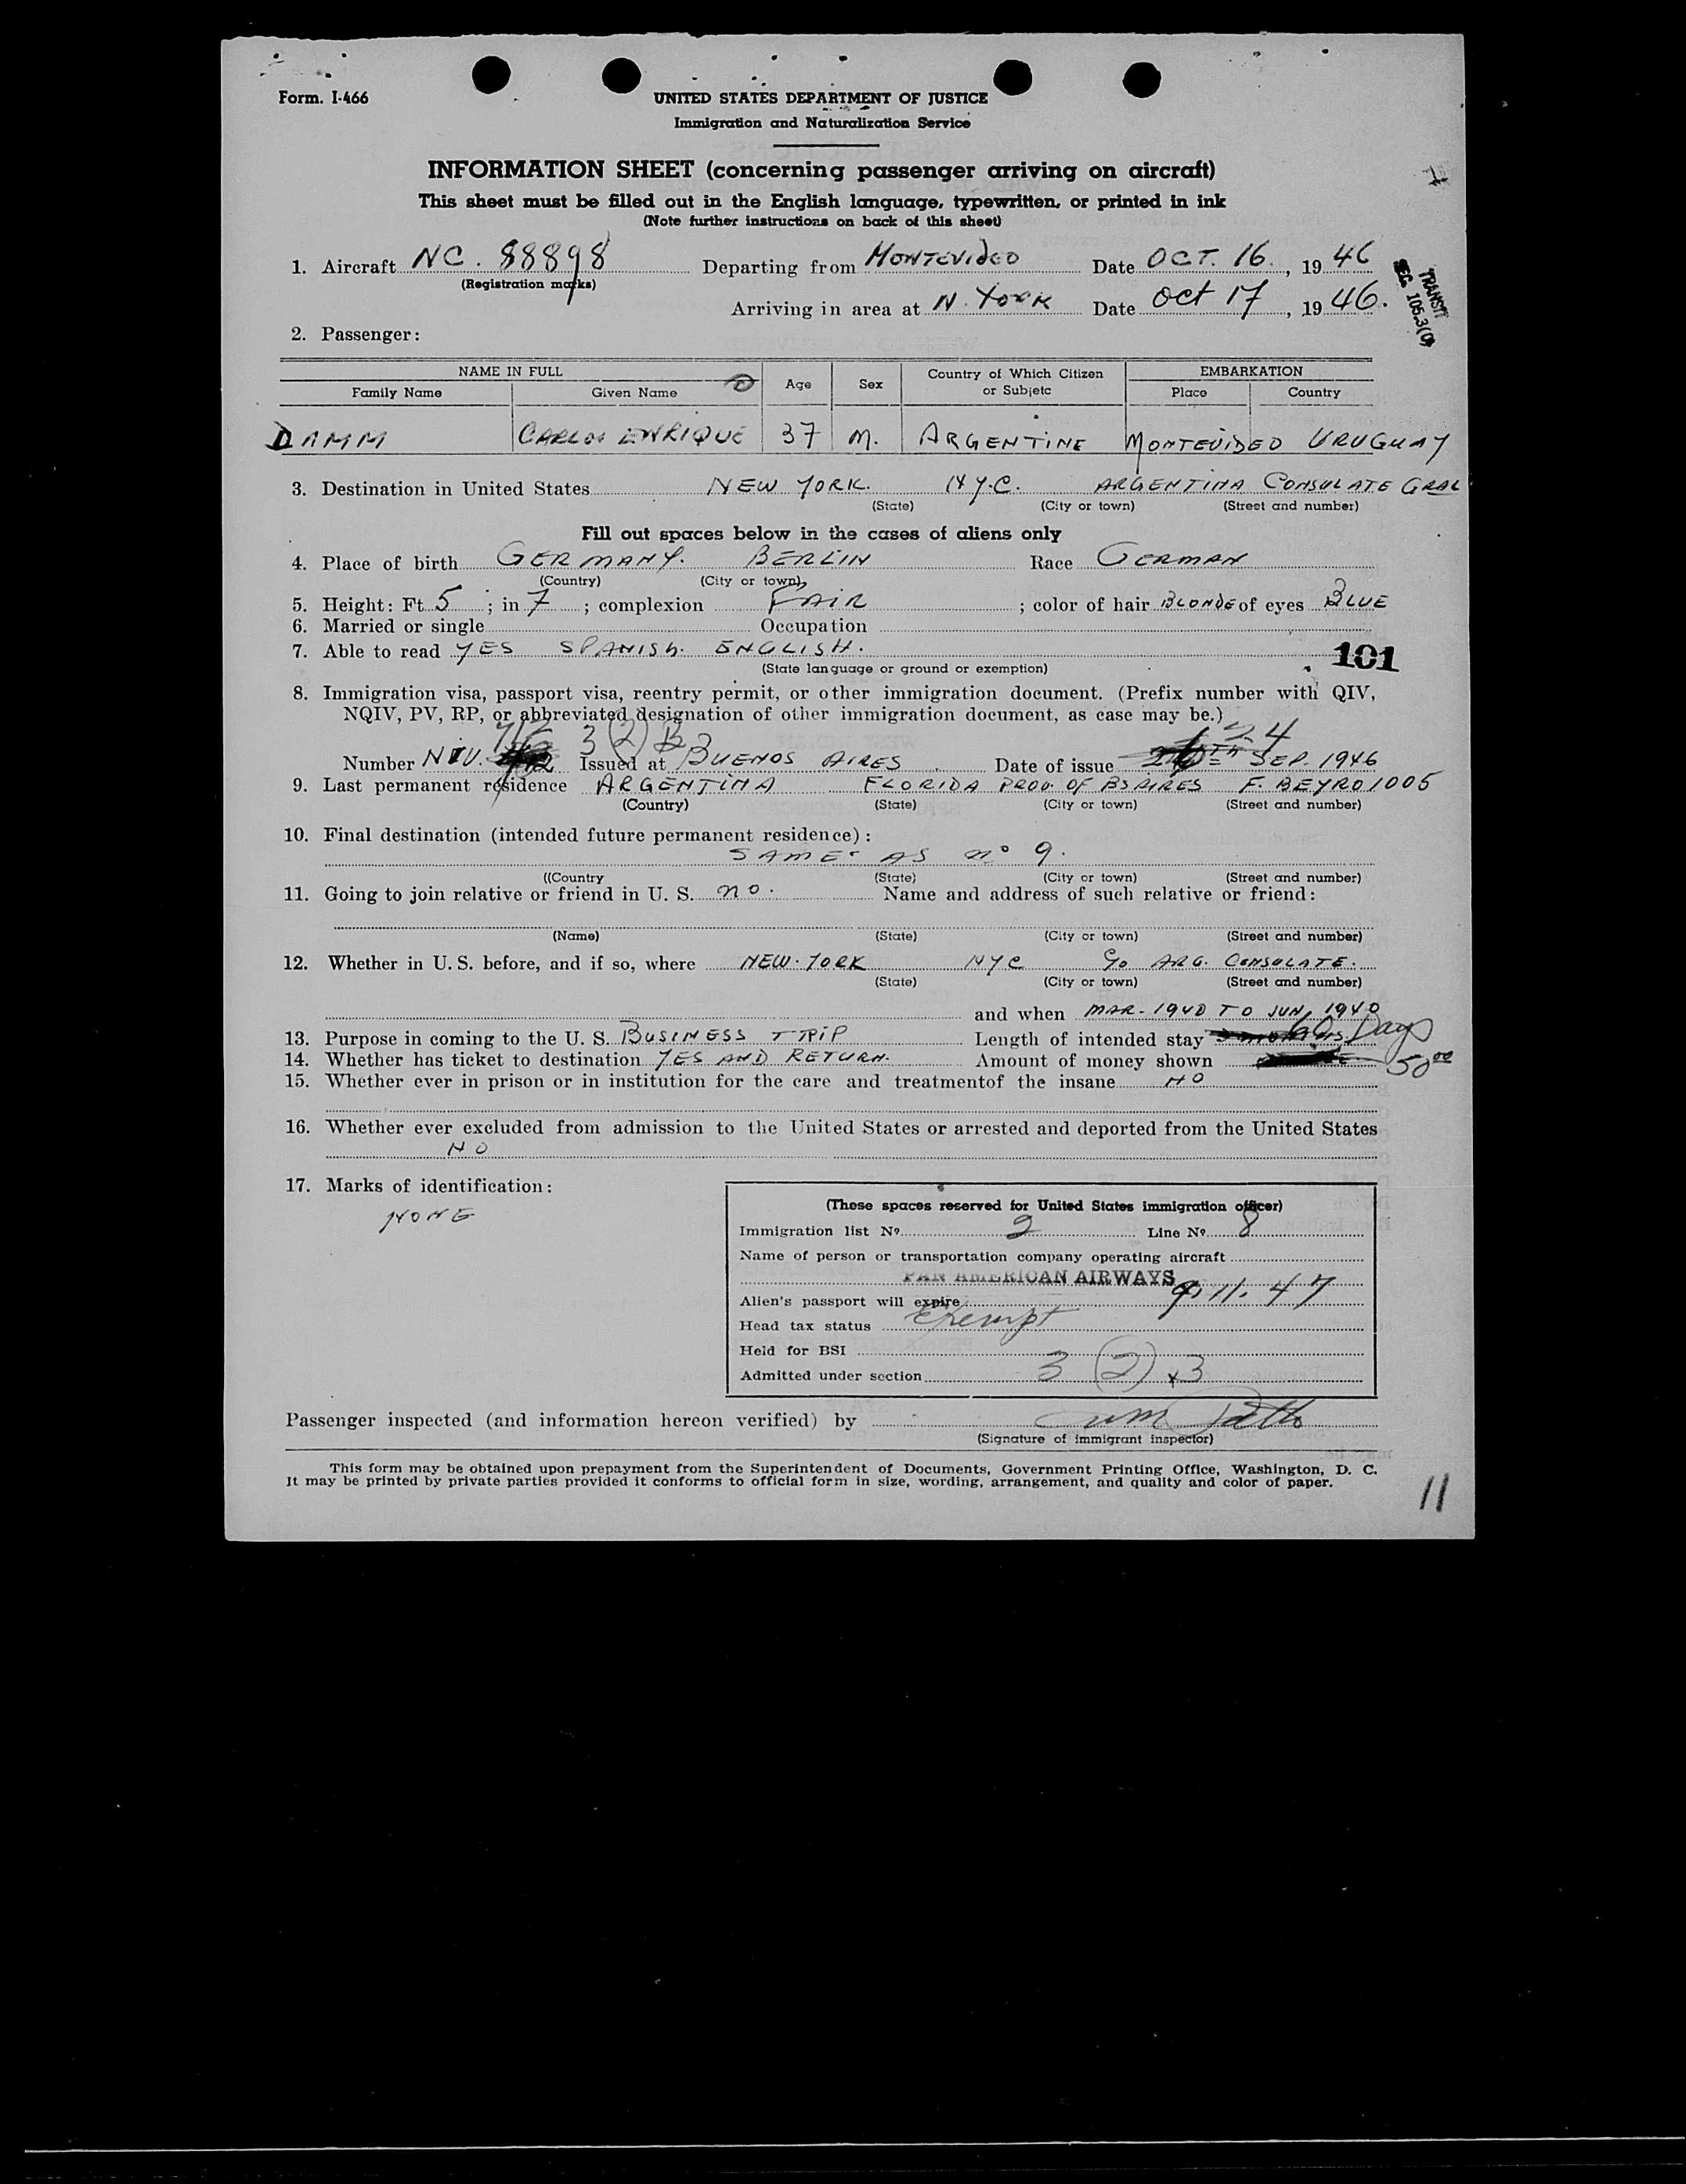 Form. I-466
UNITED STATES DEPARTMENT OF JUSTICE
Immigration and Naturalization Service
INFORMATION SHEET (concerning passenger arriving on aircraft)
This sheet must be filled out in the English language, typewritten, or printed in ink
(Note further instructions on back of this sheet)
1. Aircraft NC. 88898 Departing from MONTEVIDEO Date OCT. 16., 19 46
(Registration marks)
Arriving in area at N. YORK Date Oct 17, 19 46.
TRANSIT
SEC 105.3(C)
2. Passenger:
NAME IN FULL Age Sex Country of Which Citizen or Subjetc EMBARKATION
Family Name Given Name Place Country
DAMM CARLOS ENRIQUE 37 M. ARGENTINE MONTEVIDEO URUGUAY
3. Destination in United States NEW YORK. N.Y.C. ARGENTINA CONSULATE GRAL
(State) (City or town) (Street and number)
Fill out spaces below in the cases of aliens only
4. Place of birth GERMANY. BERLIN Race GERMAN
(Country) (City or town)
5. Height: Ft 5 ; in 7 ; complexion FAIR ; color of hair BLONDE of eyes BLUE
6. Married or single Occupation
7. Able to read YES SPANISH. ENGLISH.
(State language or ground or exemption)
101
8. Immigration visa, passport visa, reentry permit, or other immigration document. (Prefix number with QIV,
NQIV, PV, RP, or abbreviated designation of other immigration document, as case may be.)
Number NIV. 912 3(2) B Issued at BUENOS AIRES Date of issue 24 SEP. 1946
9. Last permanent residence ARGENTINA FLORIDA PROV. OF BS AIRES F. BEYRO 1005
(Country) (State) (City or town) (Street and number)
10. Final destination (intended future permanent residence):
SAME AS nº 9.
((Country (State) (City or town) (Street and number)
11. Going to join relative or friend in U. S. no. Name and address of such relative or friend:
(Name) (State) (City or town) (Street and number)
12. Whether in U. S. before, and if so, where NEW YORK NYC c/o ARG. CONSULATE.
(State) (City or town) (Street and number)
and when MAR - 1940 TO JUN, 1940
13. Purpose in coming to the U. S. BUSINESS TRIP Length of intended stay 60 Days
14. Whether has ticket to destination YES AND RETURN. Amount of money shown 50 00
15. Whether ever in prison or in institution for the care and treatmentof the insane NO
16. Whether ever excluded from admission to the United States or arrested and deported from the United States
NO
17. Marks of identification:
NONE
(These spaces reserved for United States immigration officer)
Immigration list Nº 2 Line Nº 8
Name of person or transportation company operating aircraft
PAN AMERICAN AIRWAYS
Alien's passport will expire 9.11.47
Head tax status Exempt
Held for BSI
Admitted under section 3 (2) x3
Passenger inspected (and information hereon verified) by
(Signature of immigrant inspector)
This form may be obtained upon prepayment from the Superintendent of Documents, Government Printing Office, Washington, D. C.
It may be printed by private parties provided it conforms to official form in size, wording, arrangement, and quality and color of paper.
11